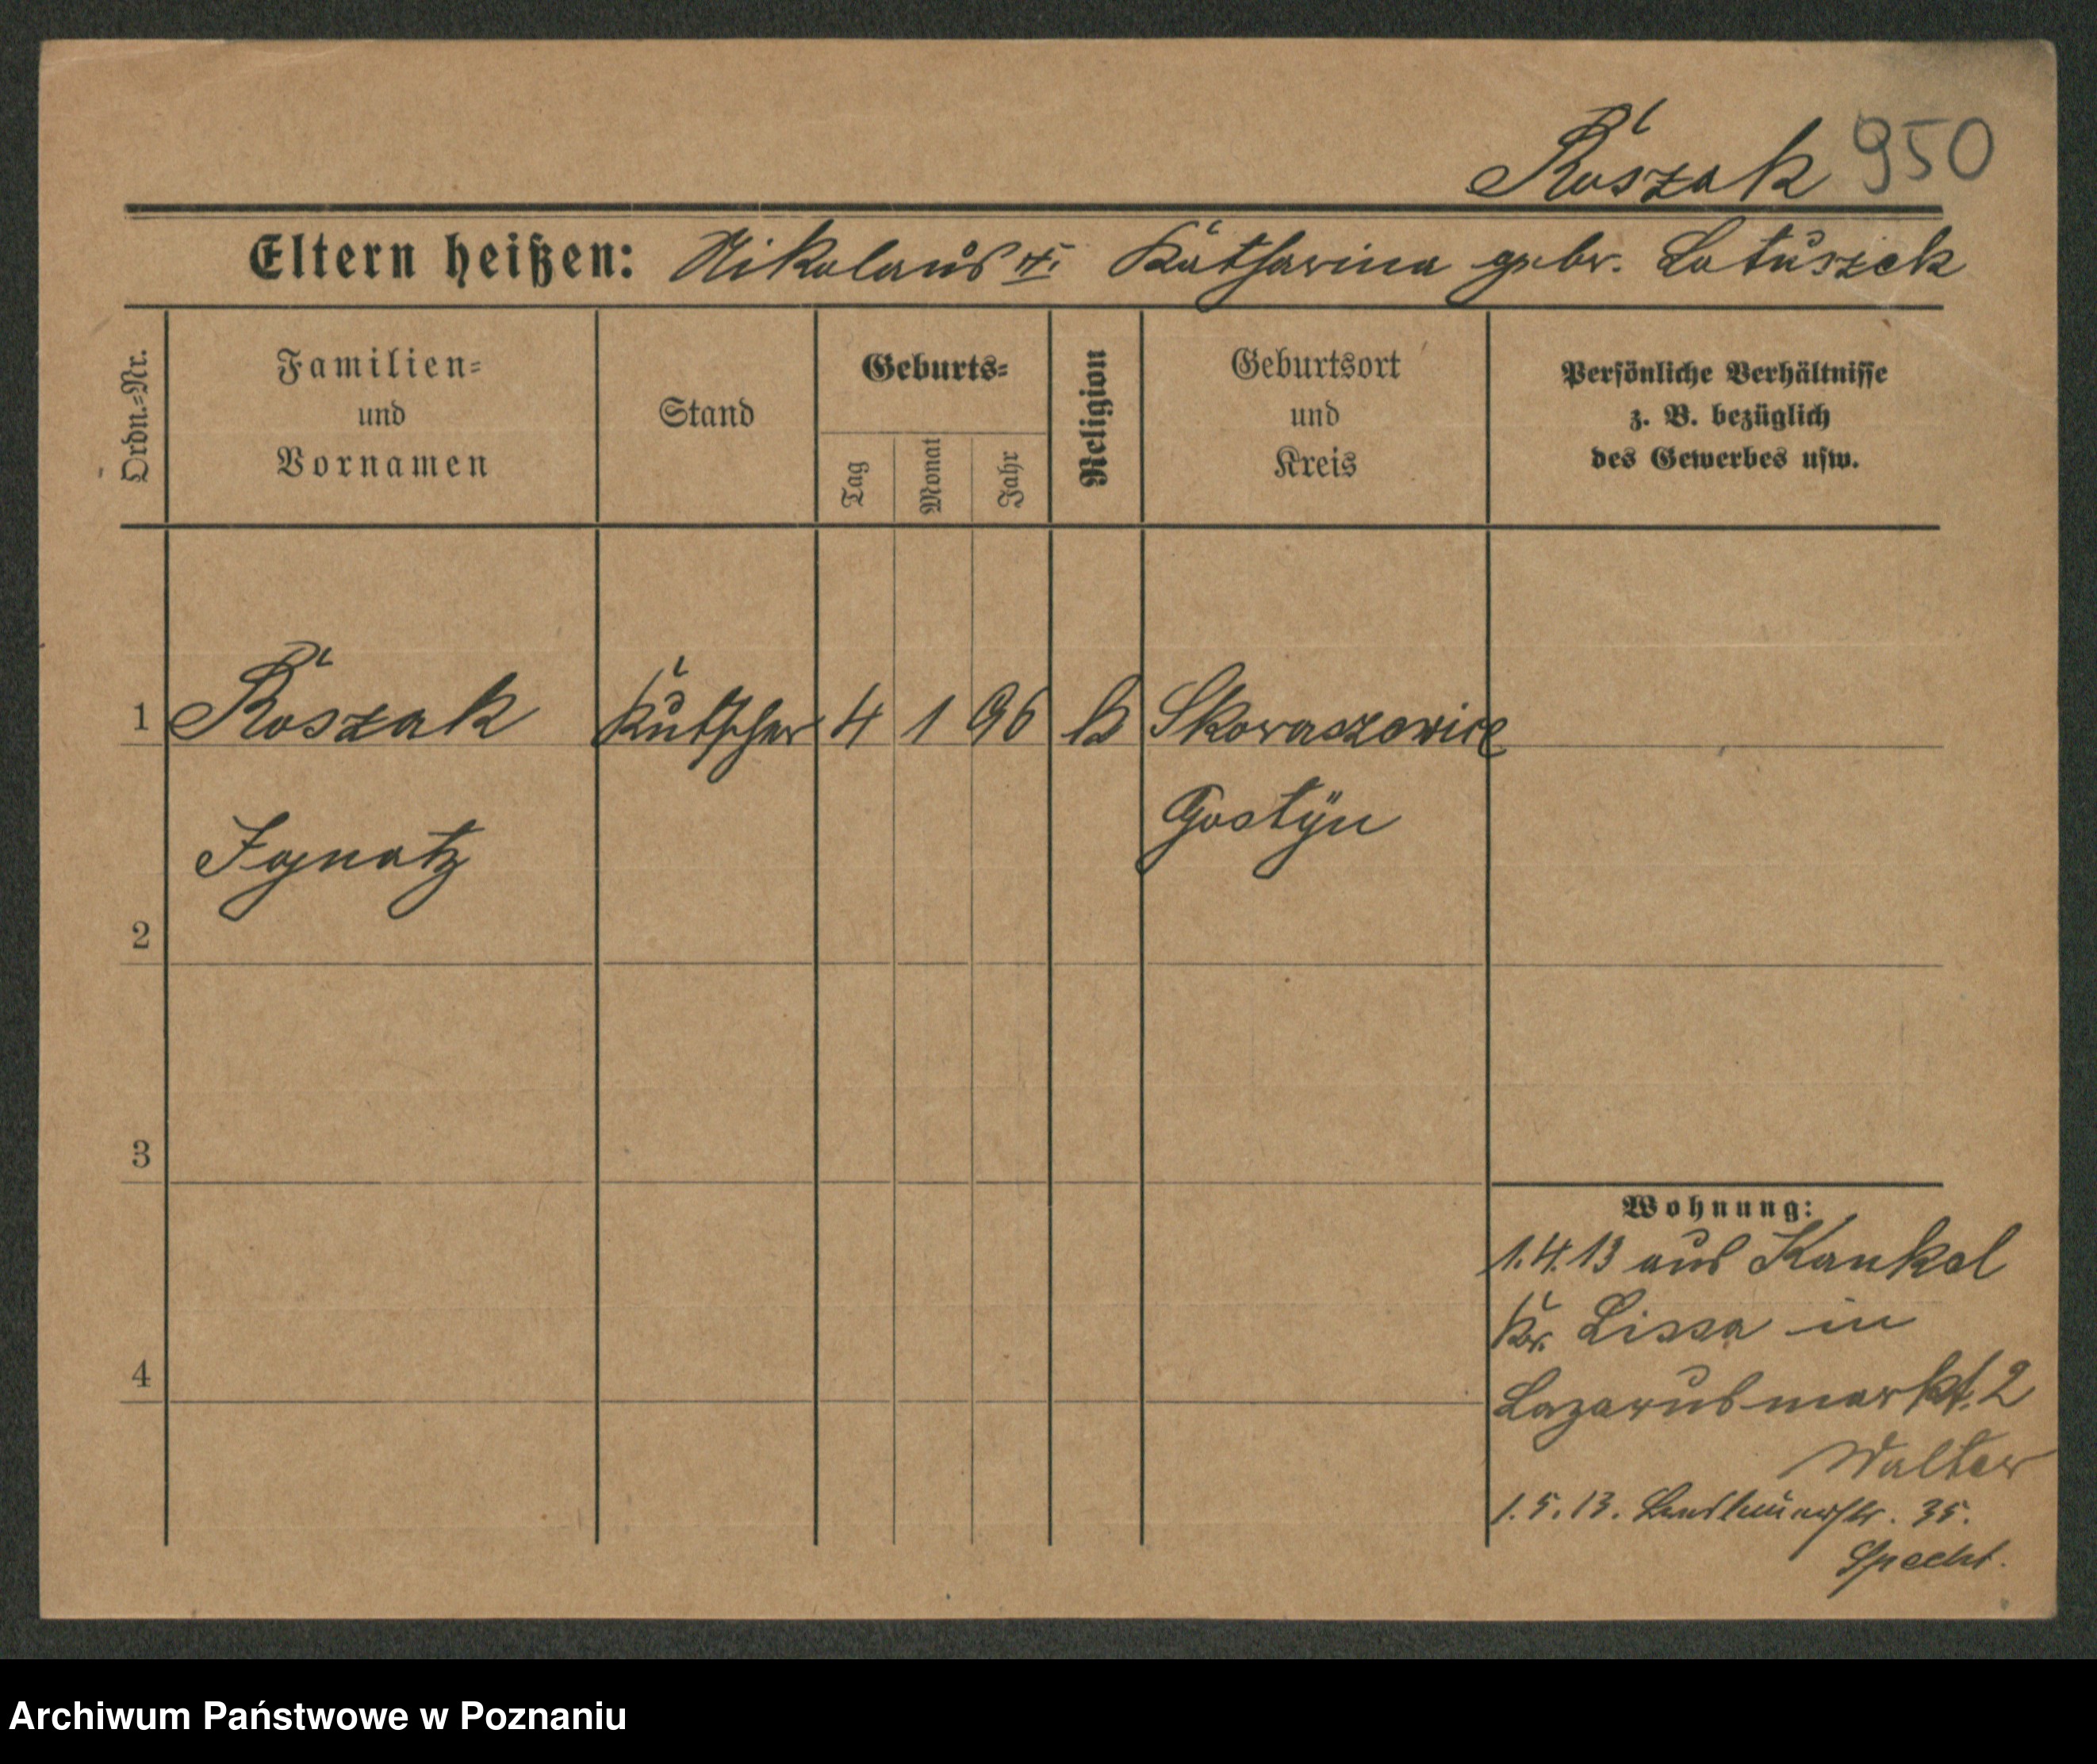 Roszak 950
Eltern heißen: Nikolaus u. Katharina gebr. Latuszek
Ordn.-Nr.
Familien-
und
Vornamen
Stand
Geburts-
Tag
Monat
Jahr
Religion
Geburtsort
und
Kreis
Persönliche Verhältnisse
z. B. bezüglich
des Gewerbes usw.
1 Roszak Kutscher 4 1 96 k Skoraszewice
Gostÿn
Ignatz
2
3
4
Wohnung:
1.4.13 aus Kankel
Kr. Lissa in
Lazarusmarkt. 2
Walter
1.5.13. 35.
Specht.
Archiwum Państwowe w Poznaniu